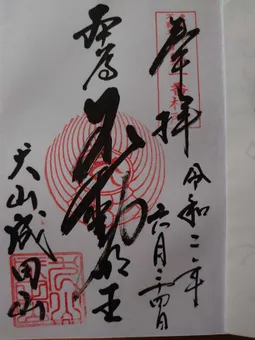 奉拝
令和二年
六月二四日
本尊
不動明王
犬山成田山